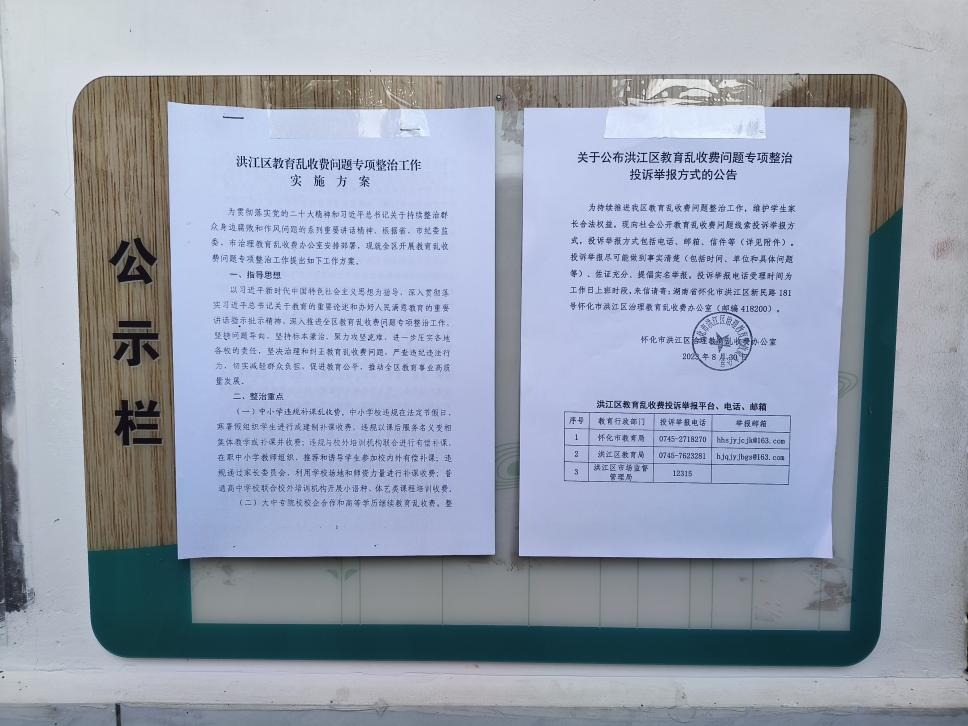 公示栏
洪江区教育乱收费问题专项整治工作
实施方案
为贯彻落实党的二十大精神和习近平总书记关于持续整治群
众身边腐败和作风问题的系列重要讲话精神，根据省、市纪委监
委、市治理教育乱收费办公室安排部署，现就全区开展教育乱收
费问题专项整治工作提出如下工作方案。
一、指导思想
以习近平新时代中国特色社会主义思想为指导，深入贯彻落
实习近平总书记关于教育的重要论述和办好人民满意教育的重要
讲话指示批示精神，深入推进全区教育乱收费问题专项整治工作，
坚持问题导向，坚持标本兼治，聚力攻坚克难，进一步压实各地
各校的责任，坚决治理和纠正教育乱收费问题，严查违纪违法行
为，切实减轻群众负担，促进教育公平，推动全区教育事业高质
量发展。
二、整治重点
（一）中小学违规补课乱收费。中小学校违规在法定节假日、
寒暑假组织学生进行成建制补课收费；违规以课后服务名义变相
集体教学或补课并收费；违规与校外培训机构联合进行有偿补课，
在职中小学教师组织、推荐和诱导学生参加校内外有偿补课；违
规通过家长委员会，利用学校场地和师资力量进行补课收费；普
通高中学校联合校外培训机构开展小语种、体艺类课程培训收费。
（二）大中专院校校企合作和高等学历继续教育乱收费。整
1
关于公布洪江区教育乱收费问题专项整治
投诉举报方式的公告
为持续推进我区教育乱收费问题整治工作，维护学生家
长合法权益，现向社会公开教育乱收费问题线索投诉举报方
式，投诉举报方式包括电话、邮箱、信件等（详见附件）。
投诉举报尽可能做到事实清楚（包括时间、单位和具体问题
等）、佐证充分，提倡实名举报。投诉举报电话受理时间为
工作日上班时段，来信请寄：湖南省怀化市洪江区新民路 181
号怀化市洪江区治理教育乱收费办公室（邮编 418200）。
怀化市洪江区治理教育乱收费办公室
2023 年 8 月 30 日
洪江区教育乱收费投诉举报平台、电话、邮箱
序号 教育行政部门 投诉举报电话 举报邮箱
1 怀化市教育局 0745-2718270 hhsjyjcjk@163.com
2 洪江区教育局 0745-7623281 hjqjyjbgs@163.com
3 洪江区市场监督管理局 12315